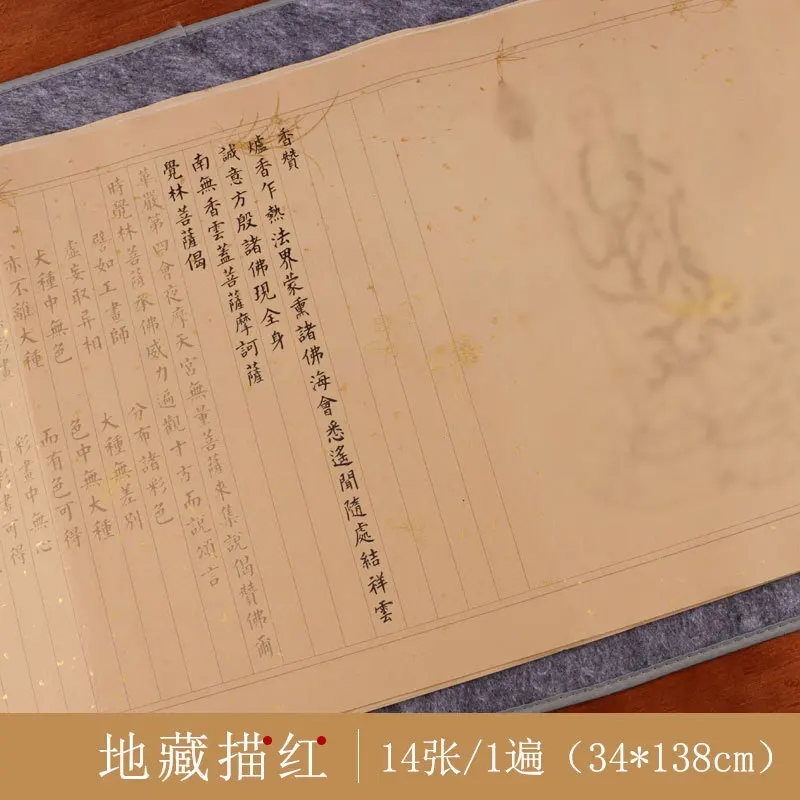 香贊
爐香乍熱法界蒙熏諸佛海會悉遙聞隨處結祥雲
誠意方殷諸佛現全身
南無香雲蓋菩薩摩訶薩
覺林菩薩偈
華嚴第四會夜摩天宮無量菩薩來集說偈贊佛爾
時覺林菩薩承佛威力遍觀十方而說頌言
譬如工畫師 分布諸彩色
虛妄取异相 大種無差別
大種中無色 色中無大種
亦不離大種 而有色可得
彩畫 彩畫中無心
有彩畫可得
地藏描红 14张/1遍（34*138cm）